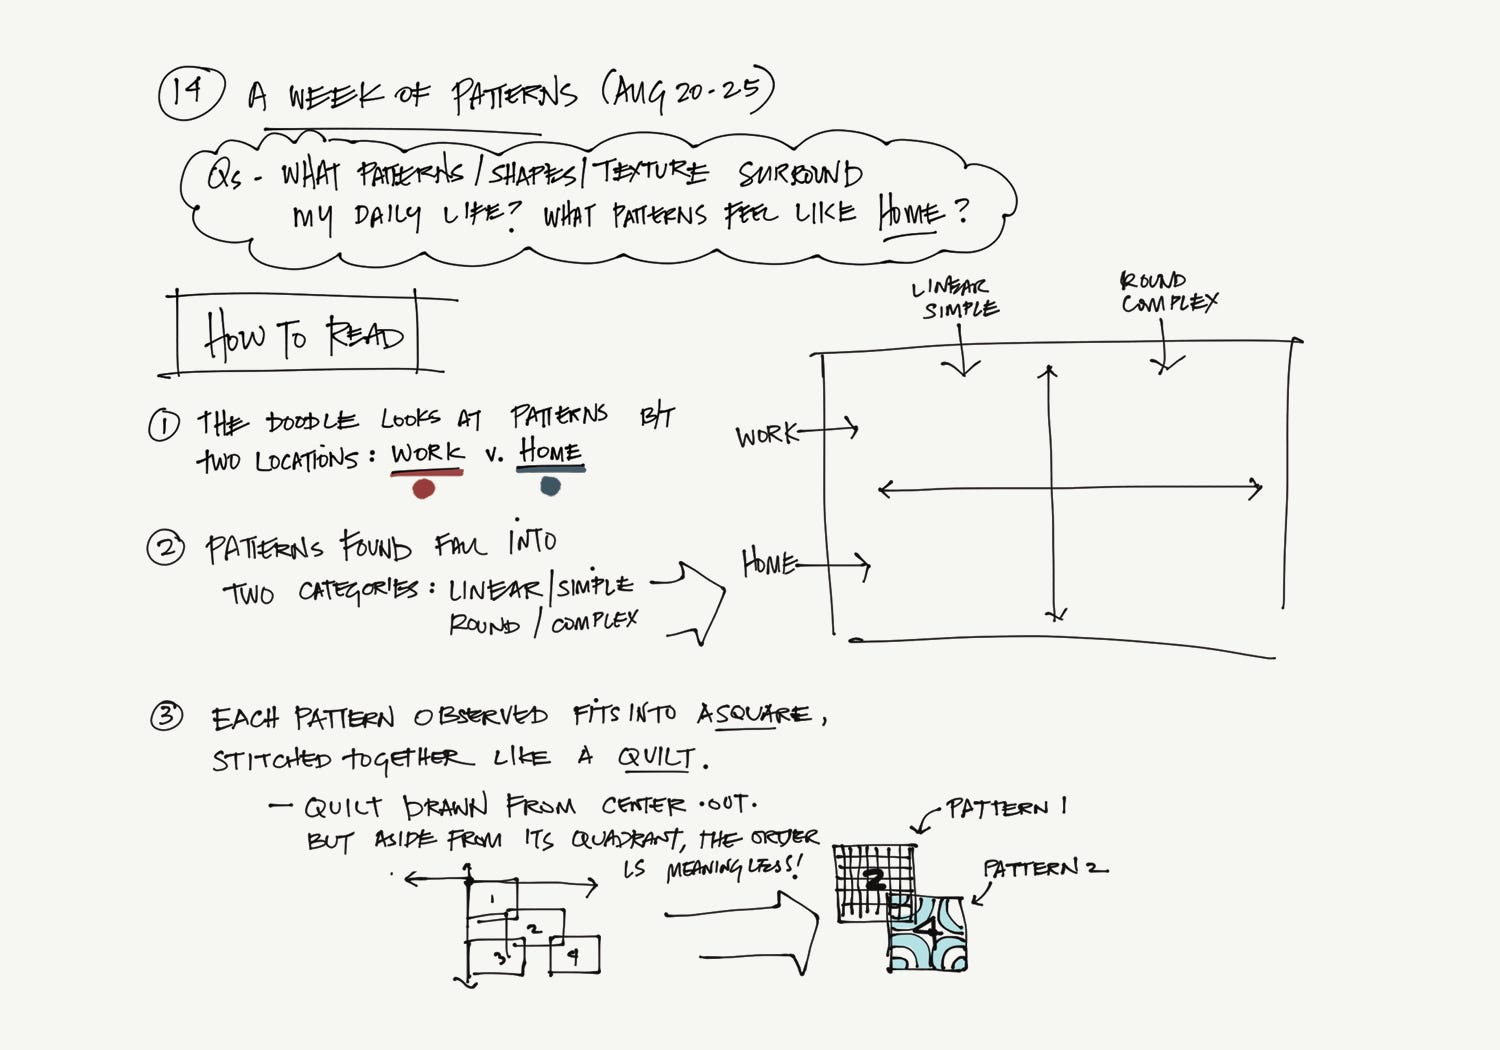 14 A WEEK OF PATTERNS (AUG 20-25)
Qs - WHAT PATTERNS/SHAPES/TEXTURE SURROUND
MY DAILY LIFE? WHAT PATTERNS FEEL LIKE HOME?
HOW TO READ
LINEAR
SIMPLE
ROUND
COMPLEX
WORK
HOME
1 THE DOODLE LOOKS AT PATTERNS B/T
TWO LOCATIONS: WORK V. HOME
2 PATTERNS FOUND FALL INTO
TWO CATEGORIES: LINEAR/SIMPLE
ROUND/COMPLEX
3 EACH PATTERN OBSERVED FITS INTO A SQUARE,
STITCHED TOGETHER LIKE A QUILT.
- QUILT DRAWN FROM CENTER-OUT.
BUT ASIDE FROM ITS QUADRANT, THE ORDER
IS MEANINGLESS!
1
2
3
4
PATTERN 1
PATTERN 2
2
4